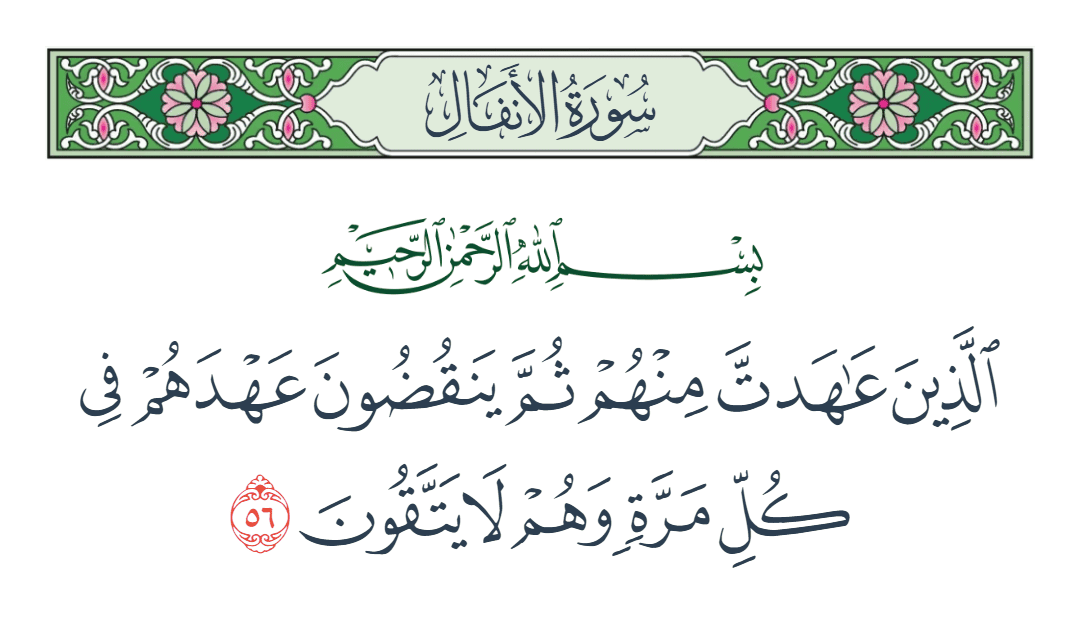 سُورَةُ الأَنفَالِ
بِسْمِ ٱللَّهِ ٱلرَّحْمَٰنِ ٱلرَّحِيمِ
ٱلَّذِينَ عَٰهَدتَّ مِنْهُمْ ثُمَّ يَنقُضُونَ عَهْدَهُمْ فِى
كُلِّ مَرَّةٍ وَهُمْ لَا يَتَّقُونَ ٥٦